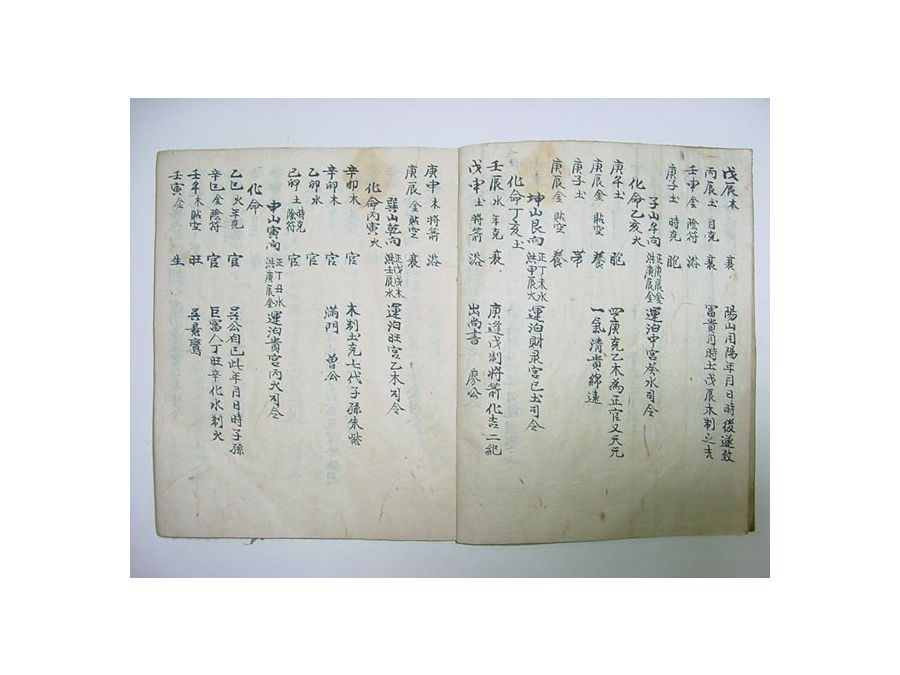 戊辰木 衰 陽山用陽年月日時後遂致
丙辰土 月克 衰 富貴月時土戊辰木制之吉
壬申金 陰符 浴
庚子土 時克 胞
子山午向 正庚辰金 洪庚辰金 運泊中宮癸水司令
化命乙亥火
庚午土 胞 四庚克乙木為正官又天元
庚辰金 貼空 養 一氣清貴綿遠
庚子土 帶
庚辰金 貼空 養
坤山艮向 正丁未水 洪甲辰火 運泊財宮己土司令
化命丁亥土
壬辰水 年克 衰 庚逢戊制將箭化吉二記
戊申土 將箭 浴 出尚書 廖公
庚申木 將箭 浴
庚辰金 貼空 衰
巽山乾向 正戊戌木 洪壬辰水 運泊旺宮乙木司令
化命丙寅火
辛卯木 官 木制土克七代子孫朱紫
辛卯木 官 滿門 曾公
己卯水 官
己卯土 時克 陰符 官
申山寅向 正丁丑水 洪庚辰金 運泊貴宮丙火司令
化命
乙巳火 年克 官 吳公自已此年月日時子孫
辛巳金 陰符 官 巨富人丁旺辛化水制火
壬午木 貼空 旺 吳景鸞
壬寅金 生